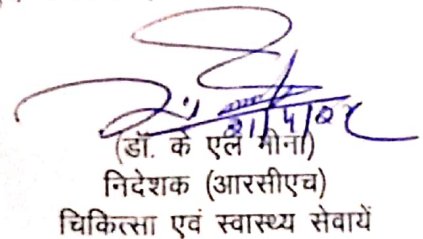 (डॉ. के एल मीना)
निदेशक (आरसीएच)
चिकित्सा एवं स्वास्थ्य सेवायें